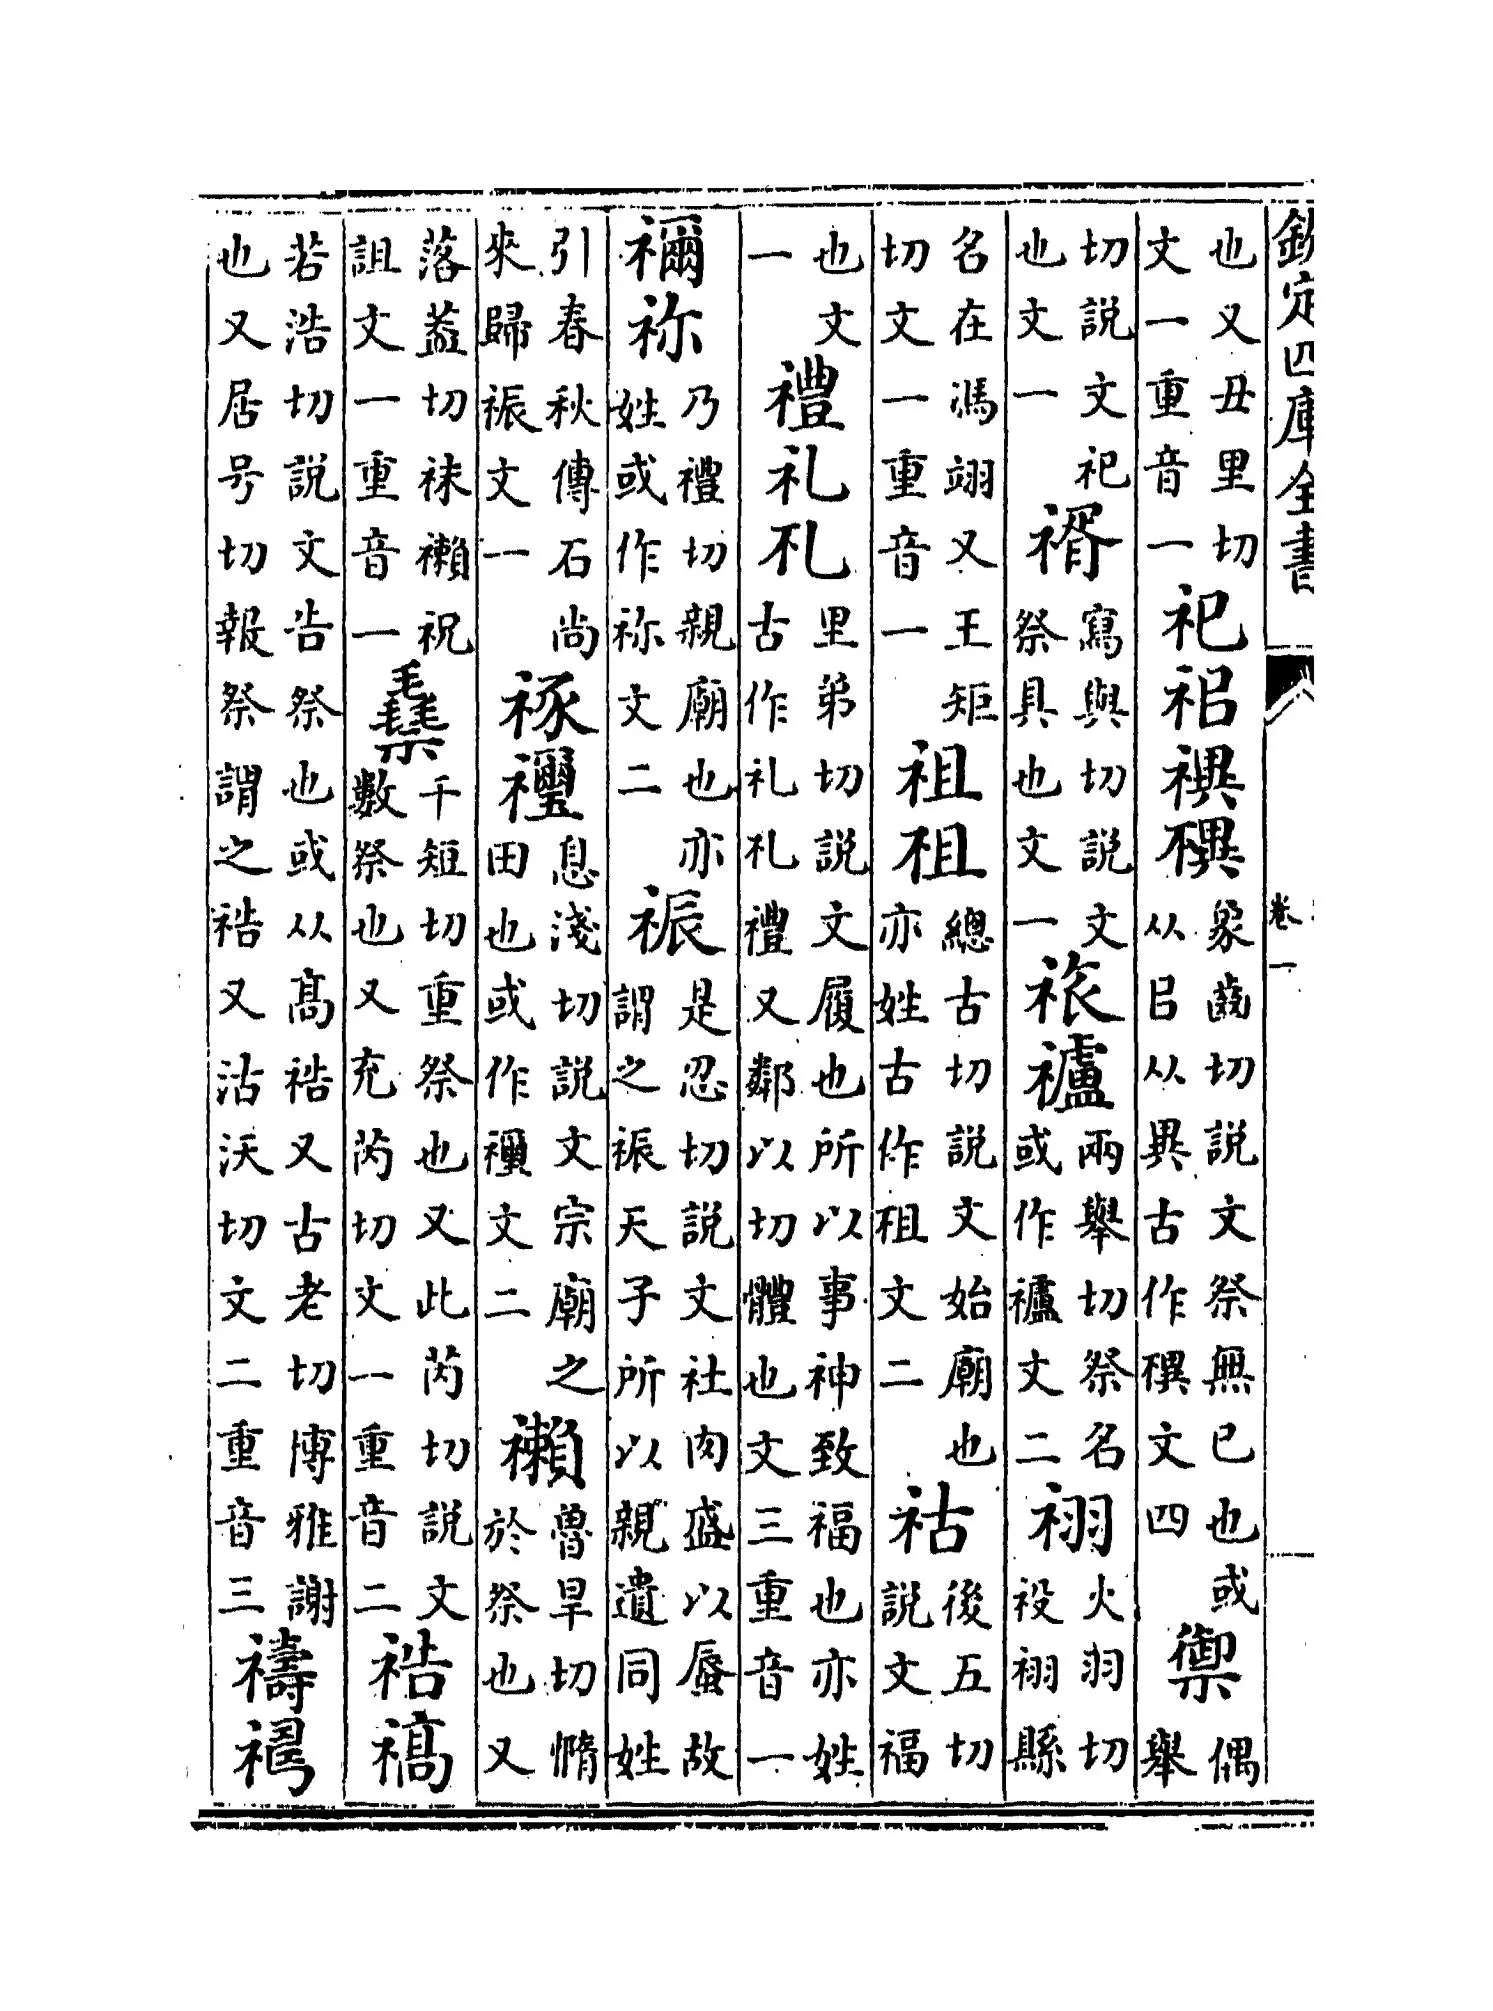 欽定四庫全書
卷一
也又丑里切文一重音一祀禩象齒切說文祭無已也或从㠯从異古作禩文四禦偶舉
切說文祀也文一寫與切說文祭具也文一祣兩舉切祭名或作文二祤火羽切祋祤縣
名在馮翊又王矩切文一重音一祖祖總古切說文始廟也亦姓古作祖文二祜後五切說文福
也文一禮礼里弟切說文履也所以事神致福也亦姓古作礼礼禮又鄰以切體也文三重音一
禰祢乃禮切親廟也亦姓或作祢文二祳是忍切說文社肉盛以蜃故謂之祳天子所以親遺同姓
引春秋傳石尚來歸祳文一禒息淺切說文宗廟之田也或作文二魯旱切惰於祭也又
落蓋切祝詛文一重音一千短切重祭也又此芮切說文數祭也又充芮切文一重音二祰禞
若浩切說文告祭也或从高祰又古老切博雅謝也又居号切報祭謂之祰又沽沃切文二重音三禱